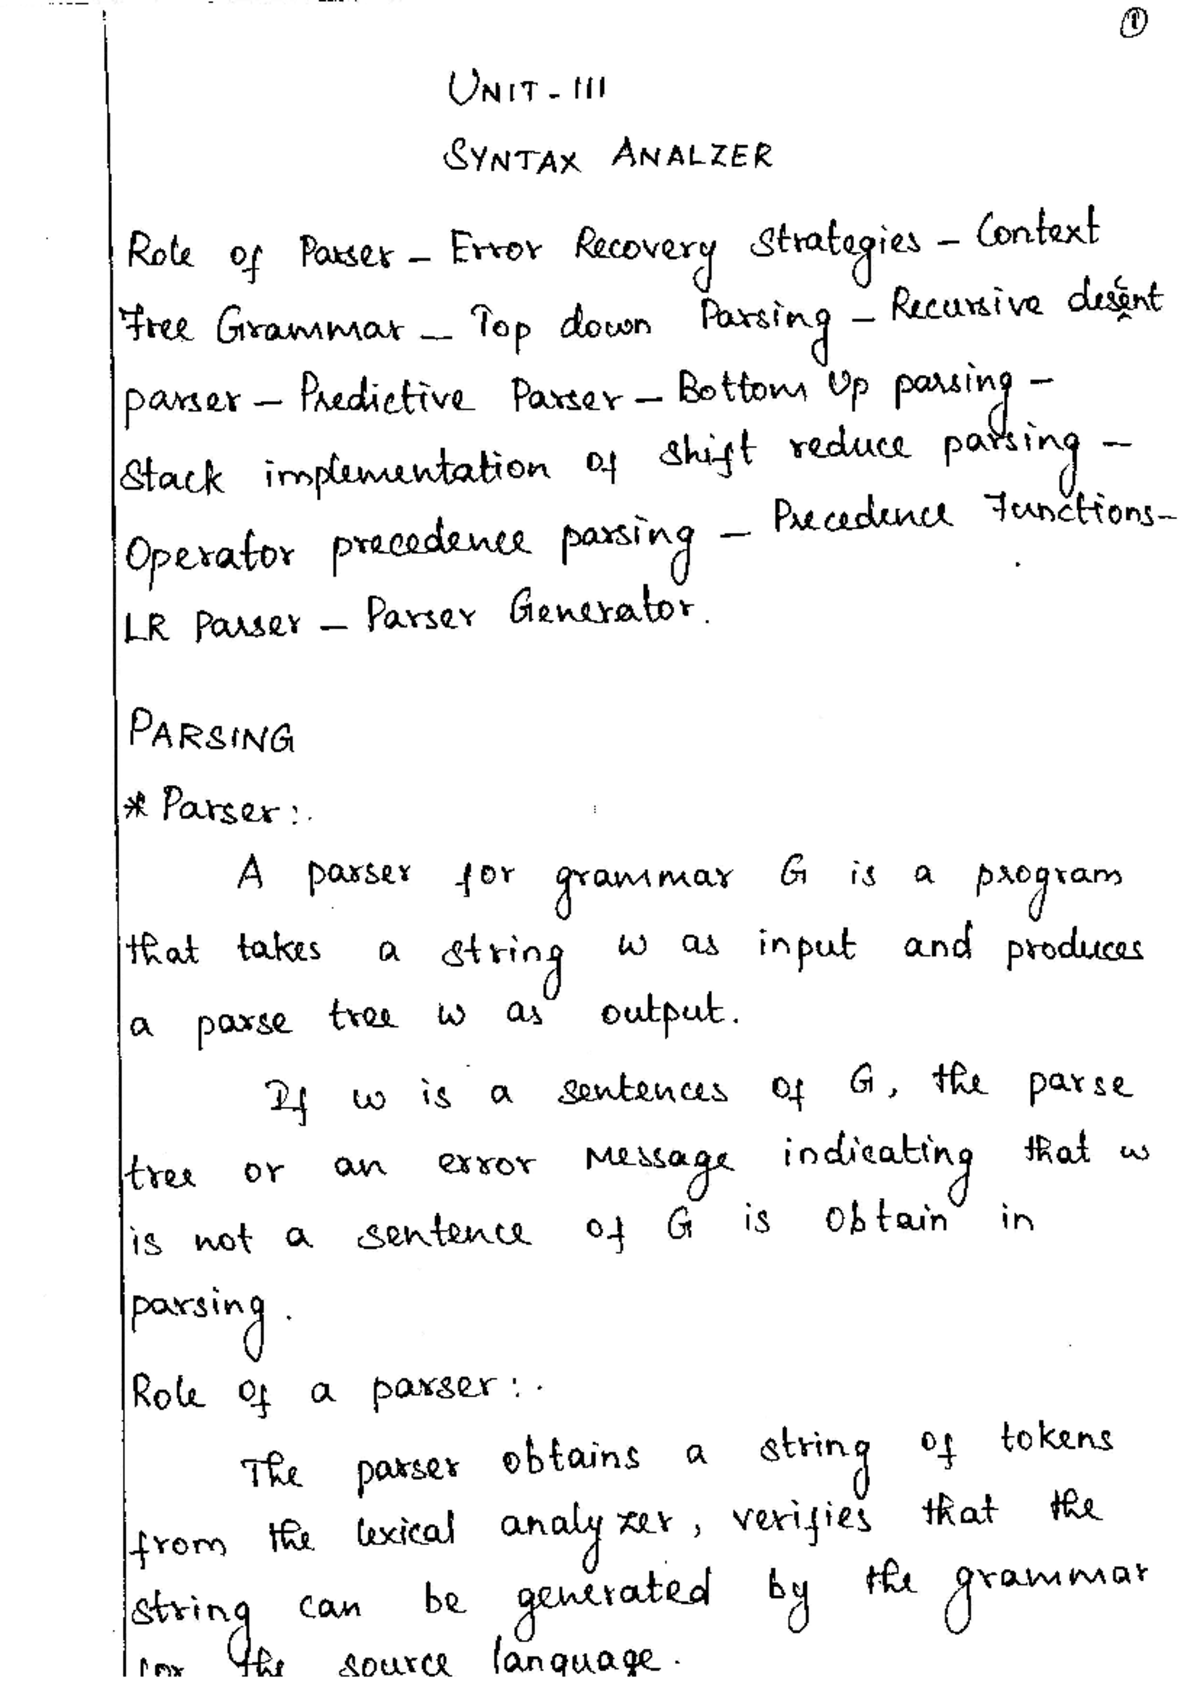 ①
UNIT - III
SYNTAX ANALZER
Role of Parser – Error Recovery Strategies – Context
Free Grammar – Top down Parsing – Recursive descent
parser – Predictive Parser – Bottom Up parsing –
Stack implementation of shift reduce parsing –
Operator precedence parsing – Precedence Functions –
LR Parser – Parser Generator.
PARSING
* Parser :.
A parser for grammar G is a program
that takes a string w as input and produces
a parse tree w as output.
If w is a sentences of G, the parse
tree or an error message indicating that w
is not a sentence of G is obtain in
parsing.
Role of a parser :.
The parser obtains a string of tokens
from the lexical analyzer, verifies that the
string can be generated by the grammar
for the source language.